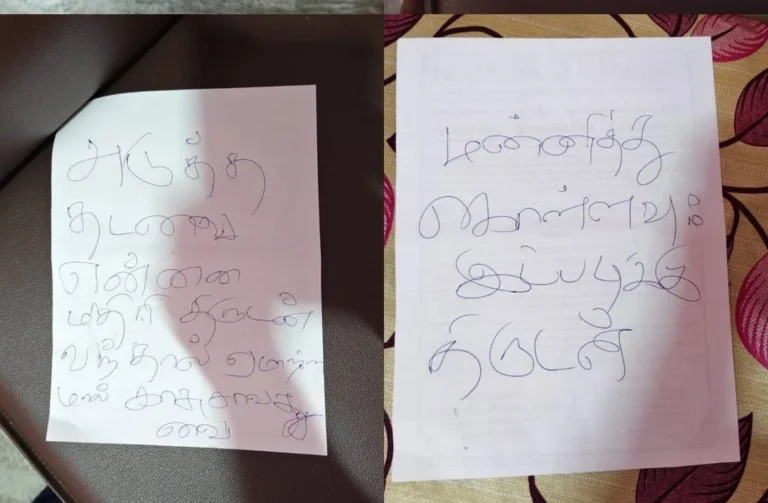 அடுத்த
தடவை
என்னை
மதிரி திருடன்
வந்தால் ஏமாற்ற
மல் காசாவது
வை
மன்னித்து
கொள்ளவும்
இப்படிக்கு
திருடன்